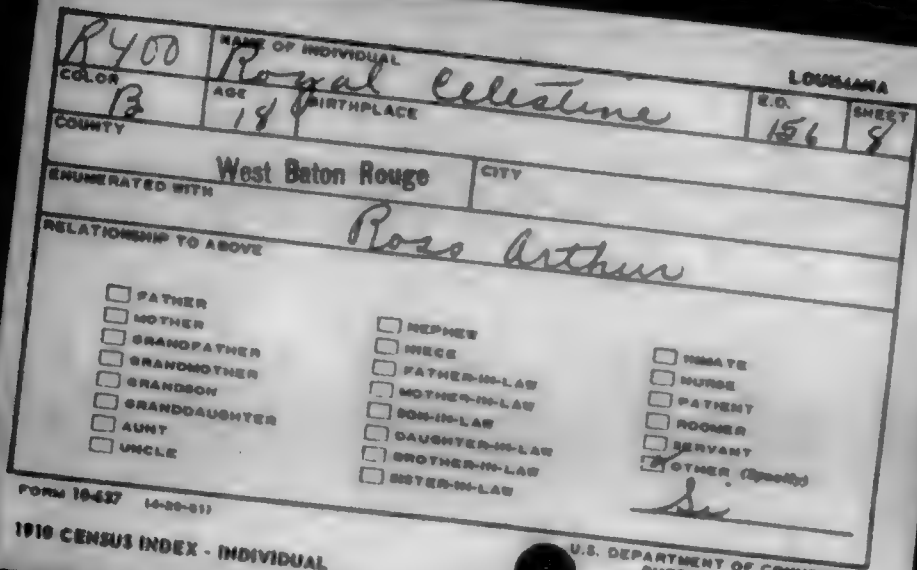 R400 NAME OF INDIVIDUAL Royal Celestine LOUISIANA
COLOR B AGE 18 BIRTHPLACE E.D. 156 SHEET 8
COUNTY West Baton Rouge CITY
ENUMERATED WITH Ross Arthur
RELATIONSHIP TO ABOVE
FATHER
MOTHER
GRANDFATHER
GRANDMOTHER
GRANDSON
GRANDDAUGHTER
AUNT
UNCLE
NEPHEW
NIECE
FATHER-IN-LAW
MOTHER-IN-LAW
SON-IN-LAW
DAUGHTER-IN-LAW
BROTHER-IN-LAW
SISTER-IN-LAW
INMATE
NURSE
PATIENT
ROOMER
SERVANT
OTHER (Specify)
FORM 10-637 (4-20-61)
1910 CENSUS INDEX - INDIVIDUAL
U.S. DEPARTMENT OF